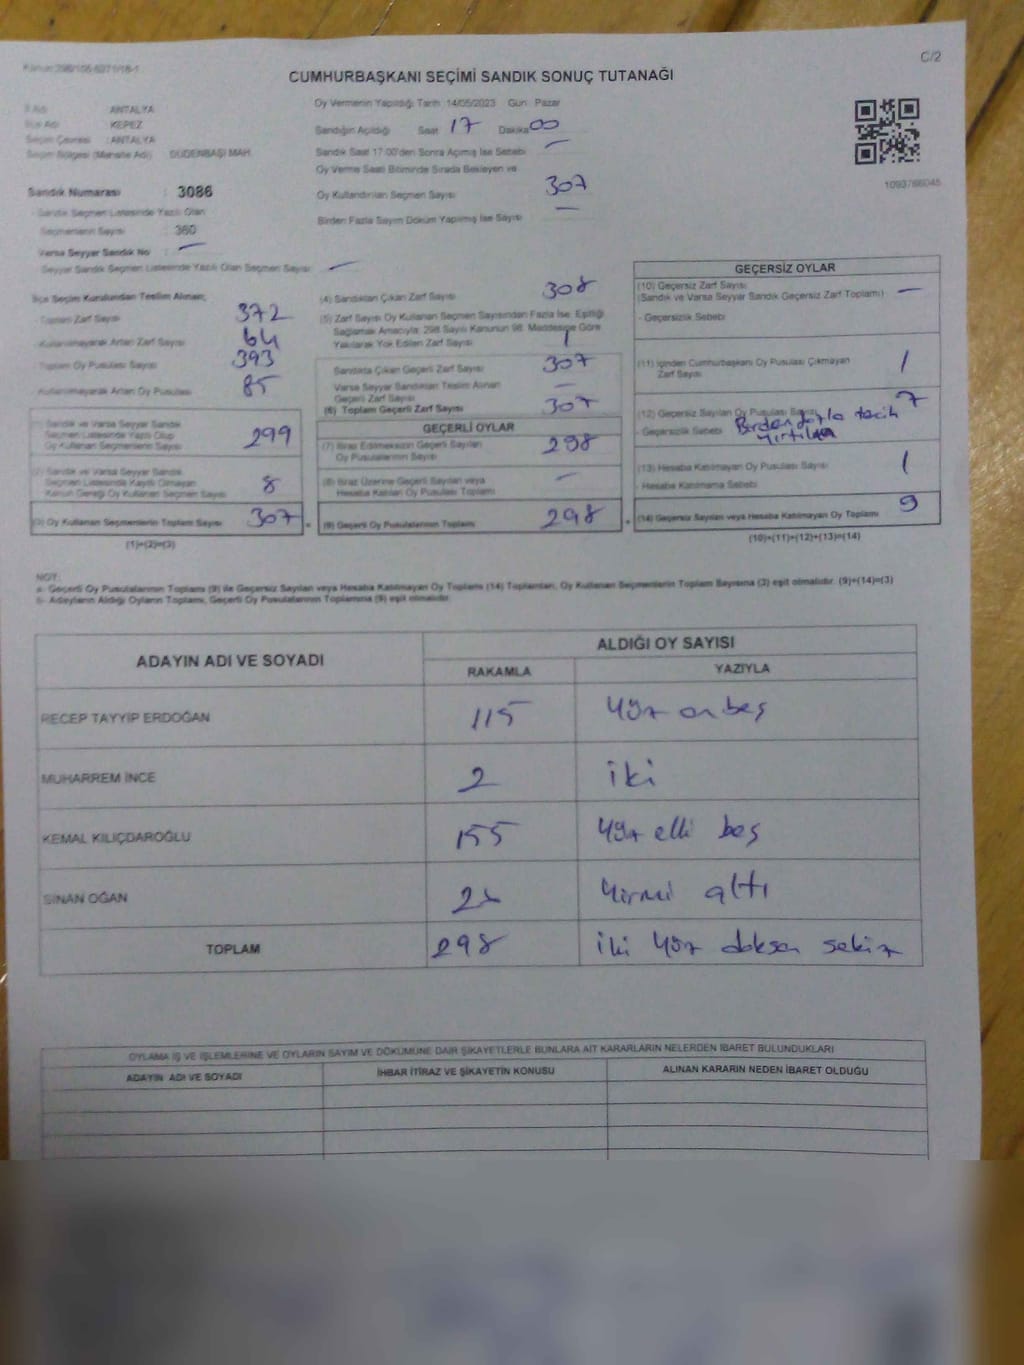 C/2
CUMHURBAŞKANI SEÇİMİ SANDIK SONUÇ TUTANAĞI
İl Adı ANTALYA
İlçe Adı KEPEZ
Seçim Çevresi : ANTALYA
Seçim Bölgesi (Mahalle Adı) DÜDENBAŞI MAH.
Sandık Numarası : 3086
- Sandık Seçmen Listesinde Yazılı Olan
Seçmenlerin Sayısı : 360
Varsa Seyyar Sandık No : —
Seyyar Sandık Seçmen Listesinde Yazılı Olan Seçmen Sayısı —
Oy Vermenin Yapıldığı Tarih 14/05/2023 Gün Pazar
Sandığın Açıldığı Saat 17 Dakika 00
Sandık Saat 17:00'den Sonra Açılmış İse Sebebi —
Oy Verme Saati Bitiminde Sırada Bekleyen ve
Oy Kullandırılan Seçmen Sayısı 307
Birden Fazla Sayım Döküm Yapılmış İse Sayısı —
1093766045
İlçe Seçim Kurulundan Teslim Alınan;
- Toplam Zarf Sayısı 372
- Kullanılmayarak Artan Zarf Sayısı 64
- Toplam Oy Pusulası Sayısı 393
- Kullanılmayarak Artan Oy Pusulası 85
(1) Sandık ve Varsa Seyyar Sandık
Seçmen Listesinde Yazılı Olup
Oy Kullanan Seçmenlerin Sayısı 299
(2) Sandık ve Varsa Seyyar Sandık
Seçmen Listesinde Kayıtlı Olmayan
Kanun Gereği Oy Kullanan Seçmen Sayısı 8
(3) Oy Kullanan Seçmenlerin Toplam Sayısı 307 =
(1)+(2)=(3)
(4) Sandıktan Çıkan Zarf Sayısı 308
(5) Zarf Sayısı Oy Kullanan Seçmen Sayısından Fazla İse, Eşitliği
Sağlamak Amacıyla; 298 Sayılı Kanunun 98. Maddesine Göre
Yakılarak Yok Edilen Zarf Sayısı 1
Sandıkta Çıkan Geçerli Zarf Sayısı 307
Varsa Seyyar Sandıktan Teslim Alınan
Geçerli Zarf Sayısı —
(6) Toplam Geçerli Zarf Sayısı 307
GEÇERLİ OYLAR
(7) İtiraz Edilmeksizin Geçerli Sayılan
Oy Pusulalarının Sayısı 298
(8) İtiraz Üzerine Geçerli Sayılan veya
Hesaba Katılan Oy Pusulası Toplamı —
(9) Geçerli Oy Pusulalarının Toplamı 298 +
GEÇERSİZ OYLAR
(10) Geçersiz Zarf Sayısı
(Sandık ve Varsa Seyyar Sandık Geçersiz Zarf Toplamı) —
- Geçersizlik Sebebi
(11) İçinden Cumhurbaşkanı Oy Pusulası Çıkmayan
Zarf Sayısı 1
(12) Geçersiz Sayılan Oy Pusulası Sayısı 7
- Geçersizlik Sebebi Birden fazla tecih
yırtılma
(13) Hesaba Katılmayan Oy Pusulası Sayısı 1
- Hesaba Katılmama Sebebi
(14) Geçersiz Sayılan veya Hesaba Katılmayan Oy Toplamı 9
(10)+(11)+(12)+(13)=(14)
NOT:
a- Geçerli Oy Pusulalarının Toplamı (9) ile Geçersiz Sayılan veya Hesaba Katılmayan Oy Toplamı (14) Toplamları, Oy Kullanan Seçmenlerin Toplam Sayısına (3) eşit olmalıdır. (9)+(14)=(3)
b- Adayların Aldığı Oyların Toplamı, Geçerli Oy Pusulalarının Toplamına (9) eşit olmalıdır.
ADAYIN ADI VE SOYADI ALDIĞI OY SAYISI
RAKAMLA YAZIYLA
RECEP TAYYİP ERDOĞAN 115 Yüz onbeş
MUHARREM İNCE 2 iki
KEMAL KILIÇDAROĞLU 155 Yüz elli beş
SİNAN OĞAN 26 Yirmi altı
TOPLAM 298 iki Yüz doksan sekiz
OYLAMA İŞ VE İŞLEMLERİNE VE OYLARIN SAYIM VE DÖKÜMÜNE DAİR ŞİKAYETLERLE BUNLARA AİT KARARLARIN NELERDEN İBARET BULUNDUKLARI
ADAYIN ADI VE SOYADI İHBAR İTİRAZ VE ŞİKAYETİN KONUSU ALINAN KARARIN NEDEN İBARET OLDUĞU